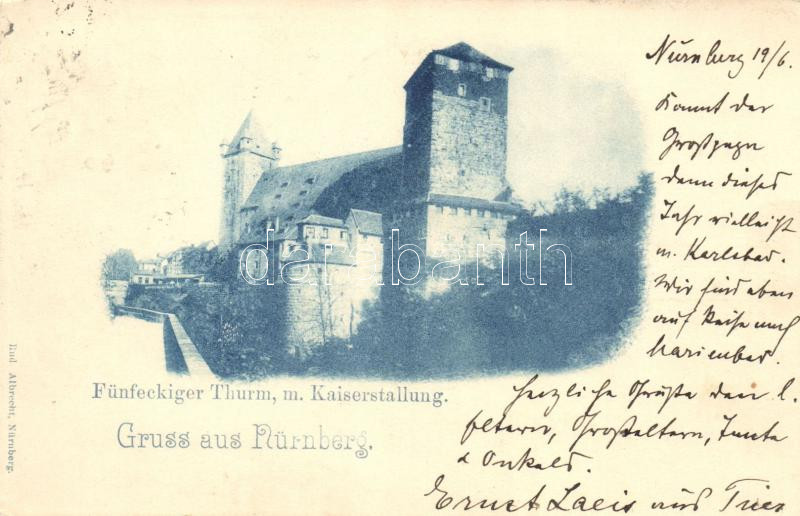 Nürnberg 19/6.
Kommt der
Großpapa
denn dieses
Jahr vielleicht
n. Karlsbad.
Wir sind eben
auf Reise nach
Marienbad.
Herzliche Grüße den l.
Eltern, Großeltern, Tante
& Onkels.
Ernst Laeis aus Trier
darabanth
Fünfeckiger Thurm, m. Kaiserstallung.
Gruss aus Nürnberg.
Rud Albrecht, Nürnberg.